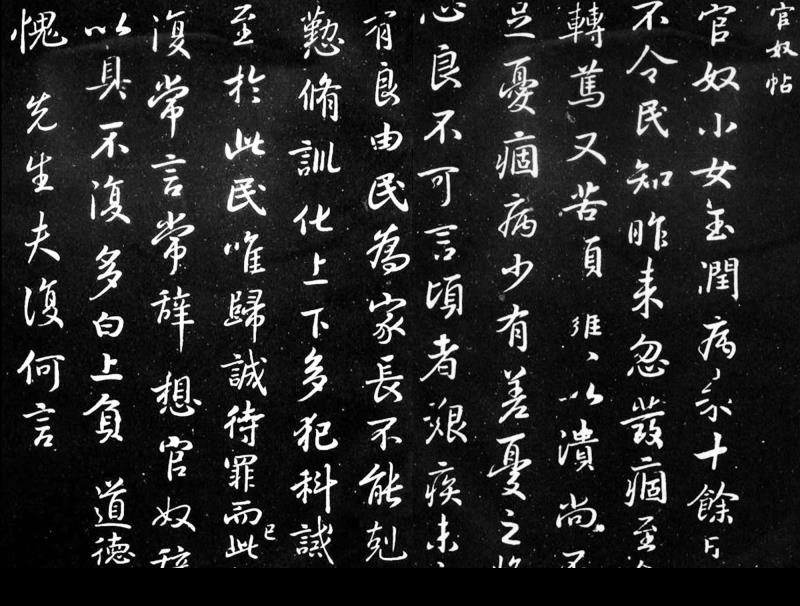 官奴帖
官奴小女玉潤病來十餘日
不令民知昨來忽發痼至
轉篤又苦頭癰以潰尚不
足憂痼病少有差憂之
心良不可言頃者艱疾未
有良由民為家長不能剋
懃脩訓化上下多犯科誡
至於此民唯歸誠待罪而此已
復常言常辭想官奴辭
以具不復多白上負 道德
愧 先生夫復何言